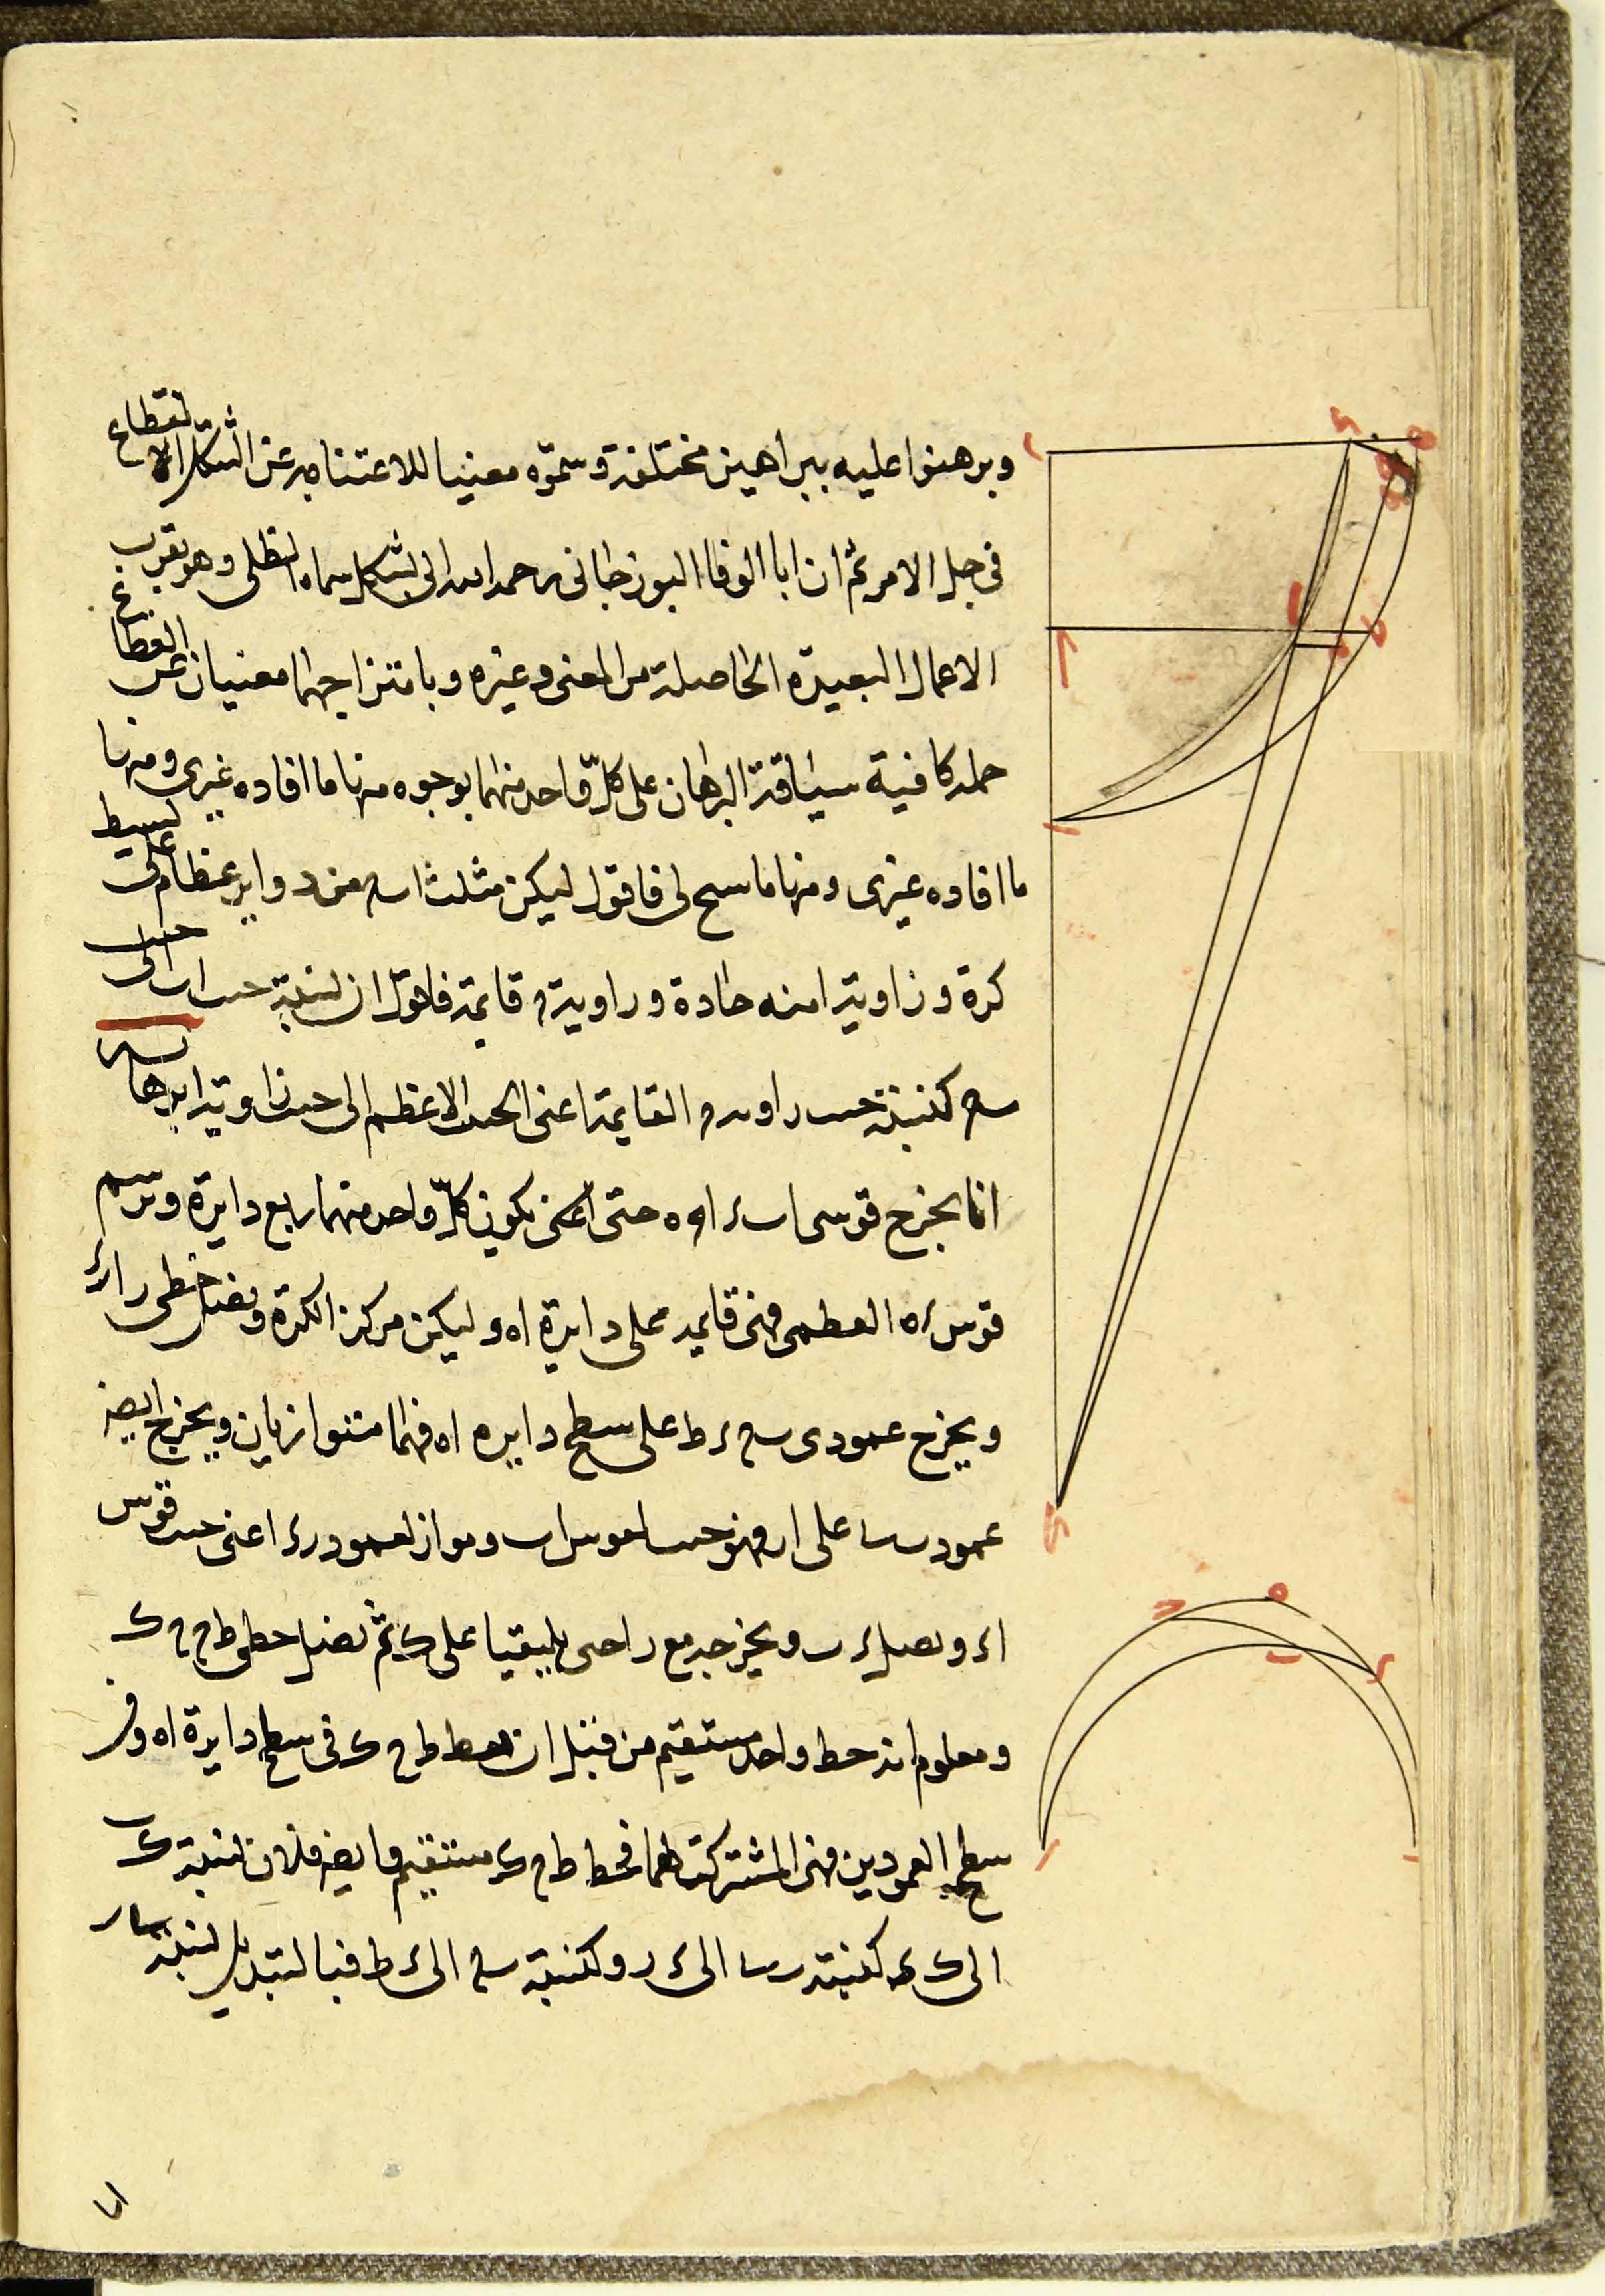 وبرهنوا عليه ببراهين مختلفة وسموه مغنيا للاعتناء به عن الشكل القطاع
فى جل الامر ثم ان ابا الوفا البوزجانى رحمه الله الى بشكل سماه الظلى وهو يقرب
الاعمال البعيدة الحاصلة من المغنى وغيره وبامتزاجهما مغنيان عن القطاع
جملة كافية سياقة البرهان على كل واحد منهما بوجوه منها ما افاده غيرى ومنها
ما افاده غيرى ومنها ما سح لى فاقول ليكن مثلث ا ب ح من دواير عظام على بسيط
كرة و زاوية ا منه حادة و زاوية ح قايمة فاقول ان نسبة جيب ا ب الى جيب
ب ح كنسبة جيب زاوية ح القايمة اعنى الجيب الاعظم الى جيب زاوية ا برهانه
انا نخرج قوسى ا ب ء ا ح ه حتى يكون كل واحد منهما ربع دايرة ونرسم
قوس ء ه العظمى فهى قايمة على دايرة ا ه وليكن مركز الكرة ونصل خطى ر ا ر ء
ويخرج عمودى ب ح ء ط على سطح دايره ا ه فهما متوازيان ويخرج ايضه
عمود ب س على ا ر فهو جيب لقوس ا ب ومواز لعمود ر ء اعنى جيب قوس
ا ء ونصل ء ب ويخرجه مع ر ا حتى يلتقيا على ك ثم نصل خطى ط ح ح ك
ومعلوم انه خط واحد مستقيم من قبل ان نقط ط ح ك فى سطح دايرة ا ه وفى
سطح العمودين فهى المشتركة لهما فخط ط ح ك مستقيم وايضه فلان نسبة ك ب
الى ك ء كنسبة ب س الى ء ر وكنسبة ب ح الى ء ط فبالتبديل نسبة ب س